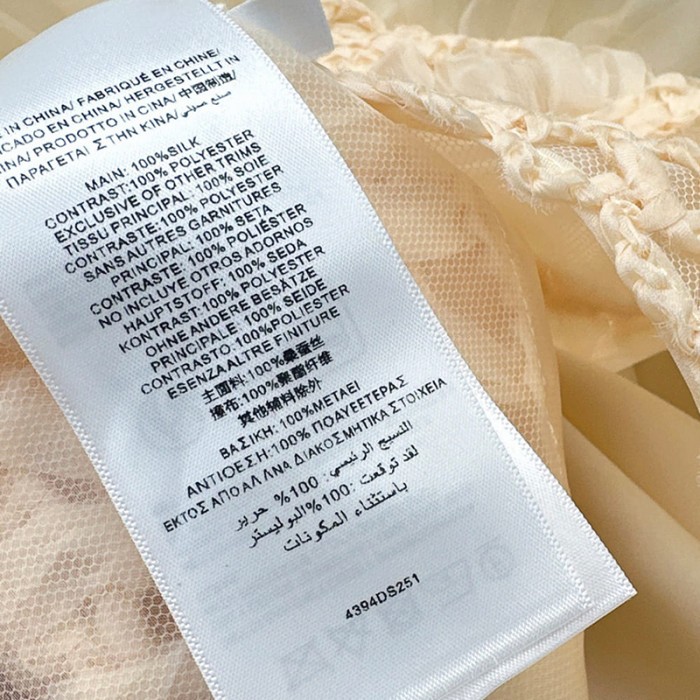 IN CHINA/ FABRIQUÉ EN CHINE/
CADO EN CHINA/ HERGESTELLT IN
INA/ PRODOTTO IN CINA/ 中国制造/
ΠΑΡΑΓΕΤΑΙ ΣΤΗΝ ΚΙΝΑ/ صنع صيني
MAIN: 100%SILK
CONTRAST:100% POLYESTER
EXCLUSIVE OF OTHER TRIMS
TISSU PRINCIPAL: 100% SOIE
CONTRASTE:100% POLYESTER
SANS AUTRES GARNITURES
PRINCIPAL: 100% SETA
CONTRASTE: 100% POLIÉSTER
NO INCLUYE OTROS ADORNOS
HAUPTSTOFF: 100% SEDA
KONTRAST:100% POLYESTER
OHNE ANDERE BESÄTZE
PRINCIPALE: 100% SEIDE
CONTRASTO:100%POLIESTER
ESENZA ALTRE FINITURE
主面料:100%桑蚕丝
撞布:100%聚酯纤维
其他辅料除外
ΒΑΣΙΚΗ: 100%ΜΕΤΑΕΙ
ΑΝΤΙΘΕΣΗ:100% ΠΟΛΥΕΣΤΕΡΑΣ
ΕΚΤΟΣ ΑΠΟ ΑΛΛΛΝΑ ΔΙΑΚΟΣΜΗΤΙΚΑ ΣΤΟΙΧΕΙΑ
النسيج الرئيسي: 100% حرير
لقد توقعت: 100%البوليستر
باستثناء المكونات
4394DS251